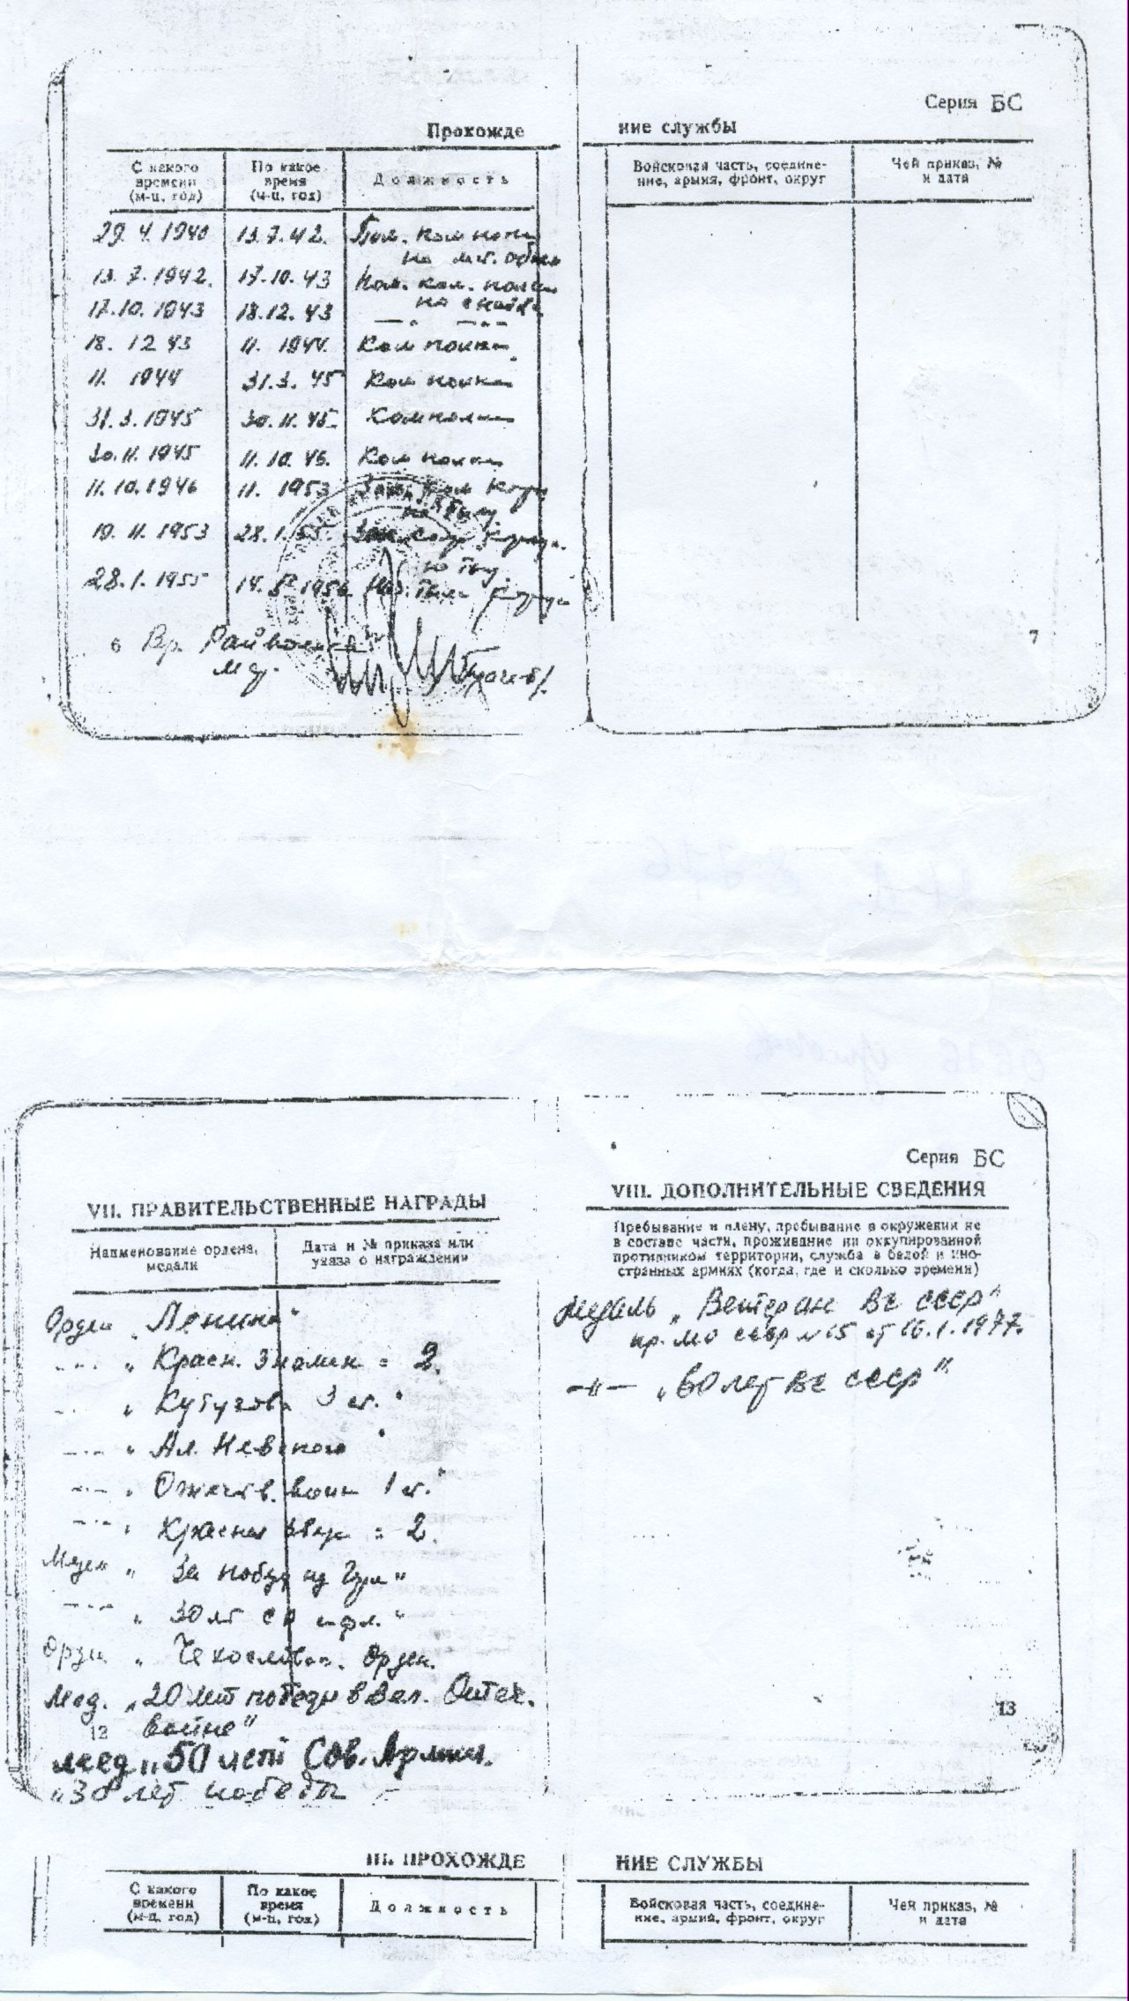 Серия БС
Прохожде ние службы
С какого времени (м-ц, год)
По какое время (м-ц, год)
Должность
Войсковая часть, соедине-
ние, армия, фронт, округ
Чей приказ, №
и дата
29.4.1940 13.7.42. Пом. ком полка
13.7.1942. 17.10.43 Пом. ком. полка
17.10.1943 18.12.43 —"—
18.12 43 11.1944. Ком полка
11. 1944 31.3.45 Ком полка
31.3.1945 30.11.45. Ком полка
30.11.1945 11.10.46. Ком полка
11.10.1946 11.1953
19.11.1953 28.1.55.
28.1.1955
6 Вр.
7
Серия БС
VII. ПРАВИТЕЛЬСТВЕННЫЕ НАГРАДЫ
Наименование ордена,
медали
Дата и № приказа или
указа о награждении
Орден „Ленина"
—"— „ Красн. Знамен = 2.
—"— „ Кутузова 3 ст."
—"— „ Ал. Невского"
—"— „ Отечеств. войн 1 ст."
—"— „ Красная Звез = 2.
„ За победу над Гер"
—"— „ 30 лет СА и фл."
Орден „ Чехословац. Орден.
Мед. „20 лет победы в Вел. Отеч.
войне"
12
мед „50 лет Сов. Армии.
„30 лет победы
VIII. ДОПОЛНИТЕЛЬНЫЕ СВЕДЕНИЯ
Пребывание в плену, пребывание в окружении не
в составе части, проживание на оккупированной
противником территории, служба в белой и ино-
странных армиях (когда, где и сколько времени)
Медаль „Ветеран ВС СССР"
пр. МО СССР №15 от 16.1.1977.
—"— „60 лет ВС СССР"
13
III. ПРОХОЖДЕ НИЕ СЛУЖБЫ
С какого времени (м-ц, год)
По какое время (м-ц, год)
Должность
Войсковая часть, соедине-
ние, армия, фронт, округ
Чей приказ, №
и дата